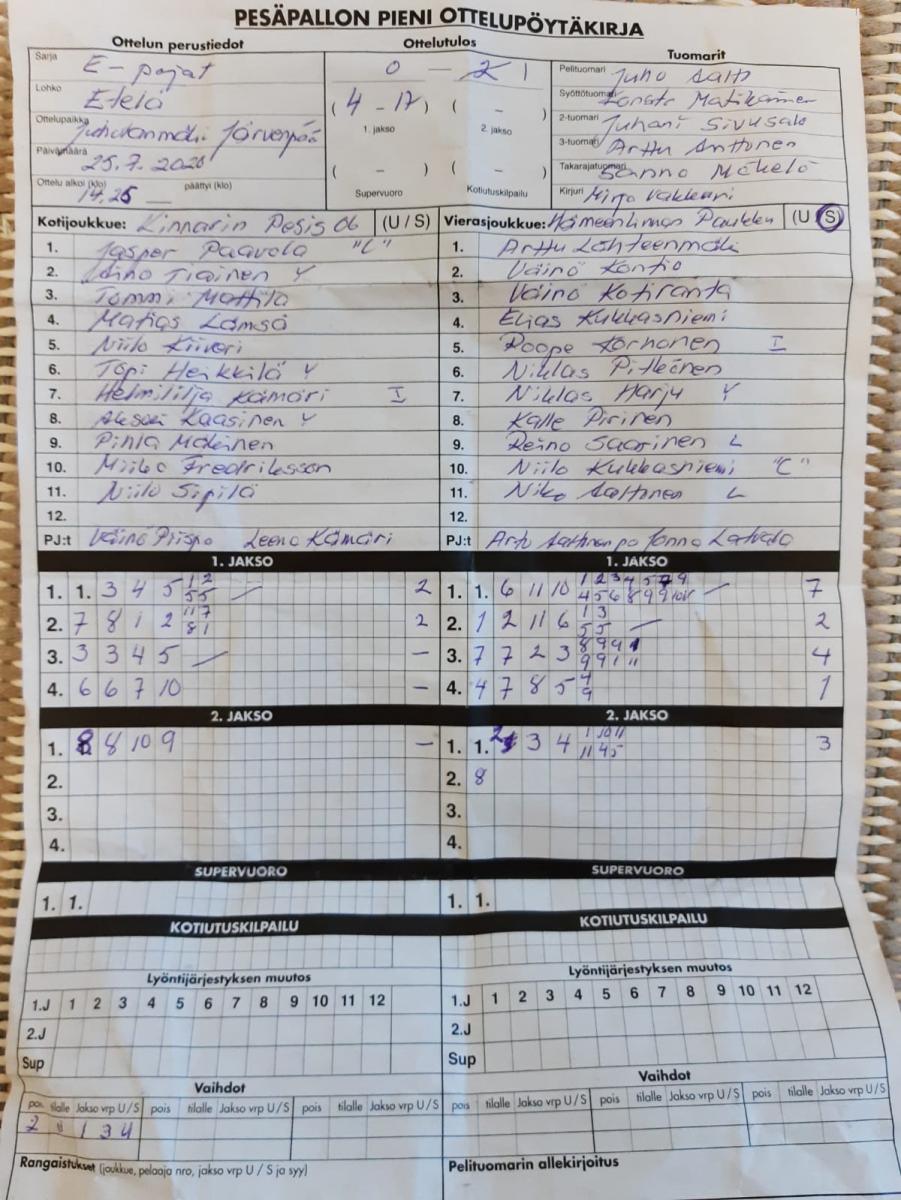 PESÄPALLON PIENI OTTELUPÖYTÄKIRJA
Ottelun perustiedot Ottelutulos Tuomarit
Sarja E-pojat 0 – 2 Pelituomari Juho
Lohko Etelä (4 – 17) ( – ) Syöttötuomari
1. jakso 2. jakso
Ottelupaikka Järvenpää 2-tuomari Juhani Sivusalo
Päivämäärä 25.7. ( – ) ( – ) 3-tuomari Arttu Anttonen
Takarajatuomari Sanno Mäkelä
Ottelu alkoi (klo) 14.25 päättyi (klo) Supervuoro Kotiutuskilpailu Kirjuri Mirja Vakkuri
Kotijoukkue: Kinnarin Pesis 06 (U / S) Vierasjoukkue: Hämeenlinnan (U / S)
1. Jasper Paavola "C" 1. Arttu Lähteenmäki
2. Tiainen Y 2. Väinö Kontio
3. Tommi Mattila 3. Väinö Kotiranta
4. Matias Lämsä 4. Elias Kukkasniemi
5. Niilo Kiiveri 5. Roope Korhonen I
6. Topi Heikkilä Y 6. Niklas Pitkänen
7. Helmililja Kämäri I 7. Niklas Harju Y
8. Kaasinen Y 8. Kalle Piirinen
9. 9. Reino Saarinen L
10. Miiko Fredriksson 10. Niilo Kukkasniemi "C"
11. Niilo Sipilä 11. Niko Aaltonen L
12. 12.
PJ:t Väinö Leena Kämäri PJ:t Aaltonen Latvala
1. JAKSO 1. JAKSO
1. 1. 3 4 5 1 2 2 1. 1. 6 11 10 1 2 3 4 5 7 9 7
55
2. 7 8 1 2 2 2. 1 2 11 6 1 3 2
81 55
3. 3 3 4 5 – 3. 7 7 2 3 4
4. 6 6 7 10 – 4. 4 7 8 5 4 1
9
2. JAKSO 2. JAKSO
1. 8 8 10 9 – 1. 1. 2 3 4 1 10 11 3
11 4 5
2. 2. 8
3. 3.
4. 4.
SUPERVUORO SUPERVUORO
1. 1. 1. 1.
KOTIUTUSKILPAILU KOTIUTUSKILPAILU
Lyöntijärjestyksen muutos Lyöntijärjestyksen muutos
1.J 1 2 3 4 5 6 7 8 9 10 11 12 1.J 1 2 3 4 5 6 7 8 9 10 11 12
2.J 2.J
Sup Sup
Vaihdot Vaihdot
pois tilalle Jakso vrp U / S pois tilalle Jakso vrp U / S pois tilalle Jakso vrp U / S pois tilalle Jakso vrp U / S pois tilalle Jakso vrp U / S pois tilalle Jakso vrp U / S
2 11 1 3 4
Rangaistukset (joukkue, pelaaja nro, jakso vrp U / S ja syy) Pelituomarin allekirjoitus